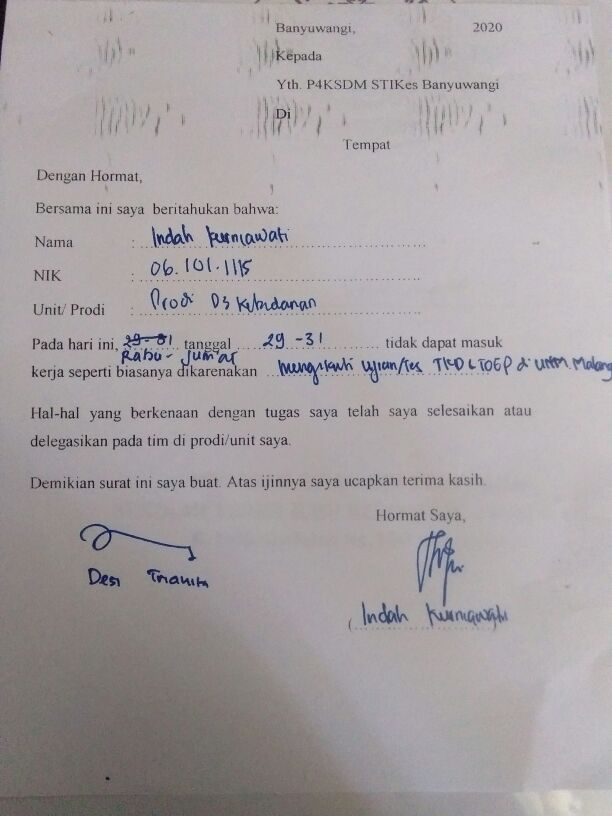 Banyuwangi, 2020
Kepada
Yth. P4KSDM STIKes Banyuwangi
Di
Tempat
Dengan Hormat,
Bersama ini saya beritahukan bahwa:
Nama : Indah Kurniawati
NIK : 06.101.1115
Unit/ Prodi : Prodi D3 Kebidanan
Pada hari ini, 29-31 tanggal 29 -31 tidak dapat masuk
Rabu - Jum'at
kerja seperti biasanya dikarenakan mengikuti ujian/tes TKD & TOEP di UMM Malang
Hal-hal yang berkenaan dengan tugas saya telah saya selesaikan atau
delegasikan pada tim di prodi/unit saya.
Demikian surat ini saya buat. Atas ijinnya saya ucapkan terima kasih.
Hormat Saya,
Desi Trianita
( Indah Kurniawati